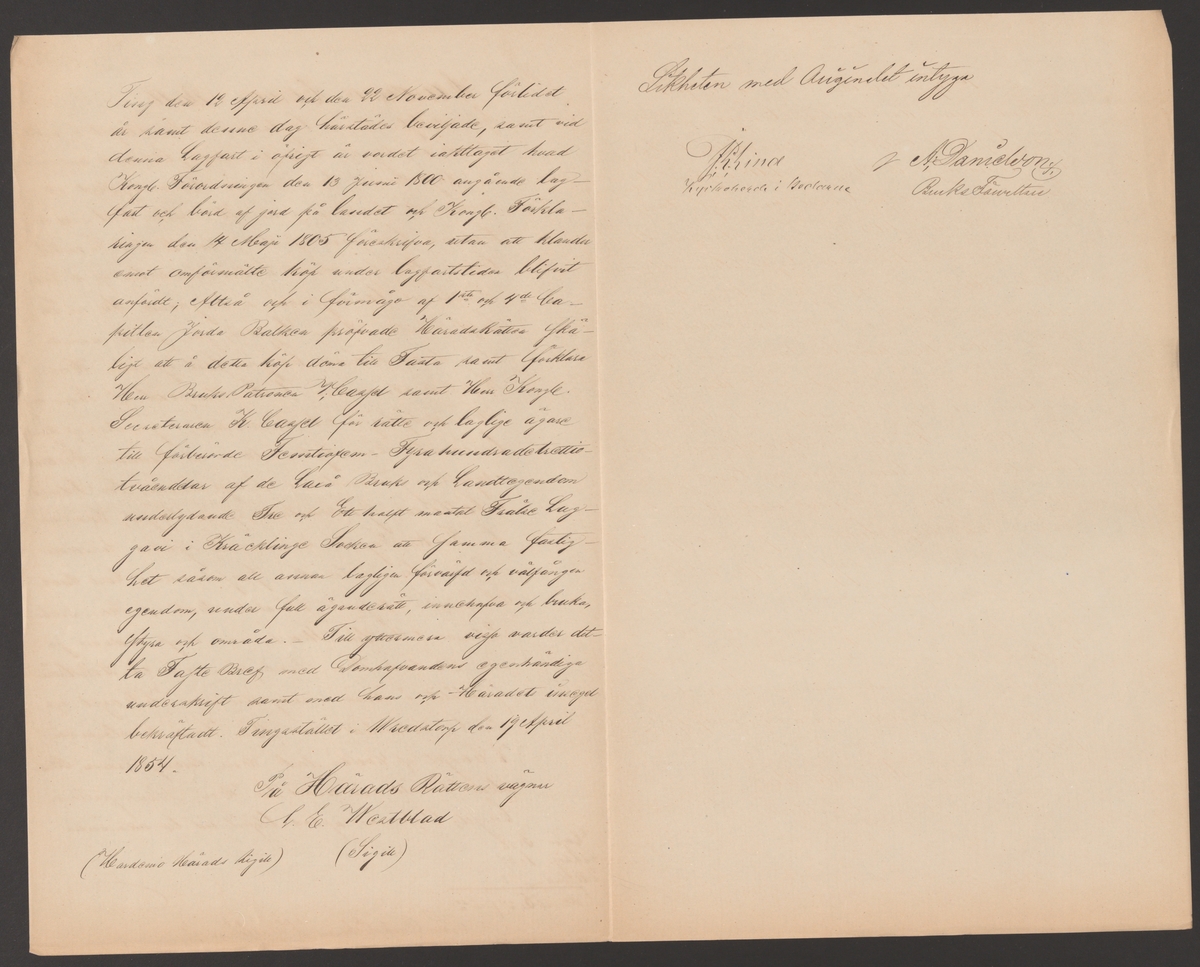 Ting den 12 April och den 22 November förlidet
år samt denne dag härstädes beviljade, samt vid
denna Lagfart i öfrigt är vordet iakttaget hvad
Kongl. Förordningen den 13 Junii 1800 angående lag-
fart och börd af jord på landet och Kongl. Förkla-
ringen den 14 Maji 1805 föreskrifva, utan att klander
emot omförmälte köp under lagfartstiden blifvit
anförde; Altså och i förmågo af 1sta och 4de Ca-
pitlen Jorda Balken pröfvade HäradsRätten skä-
ligt att å detta köp döma till Fasta samt förklara
Herr Bruks Patronen Cassel samt Herr Kongl.
Secreteraren K. Cassel för rätte och laglige ägare
till förberörde Femtiofem-Fyrahundradetrettio-
tvåendelar af de Laxå Bruks och Landtegendom
underlydande Tre och Ett halft mantal Frälse Lag-
gavi i Kräcklinge Socken att samma fastig-
het såsom all annan lagligen förvärfd och välfången
egendom, under full äganderätt, innehafva och bruka,
styra och områda. - Till yttermera visso varder det-
ta Faste Bref med Domhafvandens egenhändiga
underskrift samt med hans och Häradets insegel
bekräftadt. Tingsstället i Wredstorp den 19 April
1854.
På Härads Rättens vägnar
C. E. Westblad
(Hardemo Härads Sigill) (Sigill)
Likheten med Originalet intyga
Lind N. Danielson
Kyrkoherde i Bruks Förvaltare